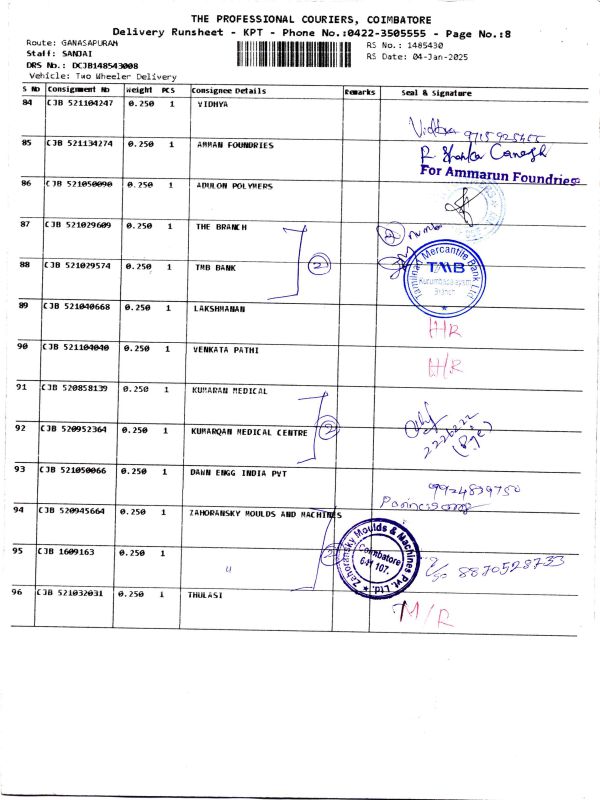 THE PROFESSIONAL COURIERS, COIMBATORE
Delivery Runsheet - KPT - Phone No.:0422-3505555 - Page No.:8
Route: GANASAPURAM
RS No.: 1485430
Staff: SANJAI
RS Date: 04-Jan-2025
DRS No.: DCJB148543008
Vehicle: Two Wheeler Delivery
S No Consignment No Weight PCS Consignee Details Remarks Seal & Signature
84 CJB 521104247 0.250 1 VIDHYA
Vidhya
85 CJB 521134274 0.250 1 AMMAN FOUNDRIES
For Ammarun Foundries
86 CJB 521050090 0.250 1 ADULON POLYMERS
87 CJB 521029609 0.250 1 THE BRANCH
2
88 CJB 521029574 0.250 1 TMB BANK
Tamilnad Mercantile Bank Ltd
TMB
Kurumbapalayam
Branch
89 CJB 521040668 0.250 1 LAKSHMANAN
H/R
90 CJB 521104040 0.250 1 VENKATA PATHI
H/R
91 CJB 520858139 0.250 1 KUMARAN MEDICAL
2
92 CJB 520952364 0.250 1 KUMARQAN MEDICAL CENTRE
93 CJB 521050066 0.250 1 DAWN ENGG INDIA PVT
9924839750
94 CJB 520945664 0.250 1 ZAHORANSKY MOULDS AND MACHINES
2
Zahoransky Moulds & Machines Pvt. Ltd.
Coimbatore
641 107.
95 CJB 1609163 0.250 1 "
8870528733
96 CJB 521032031 0.250 1 THULASI
M/R